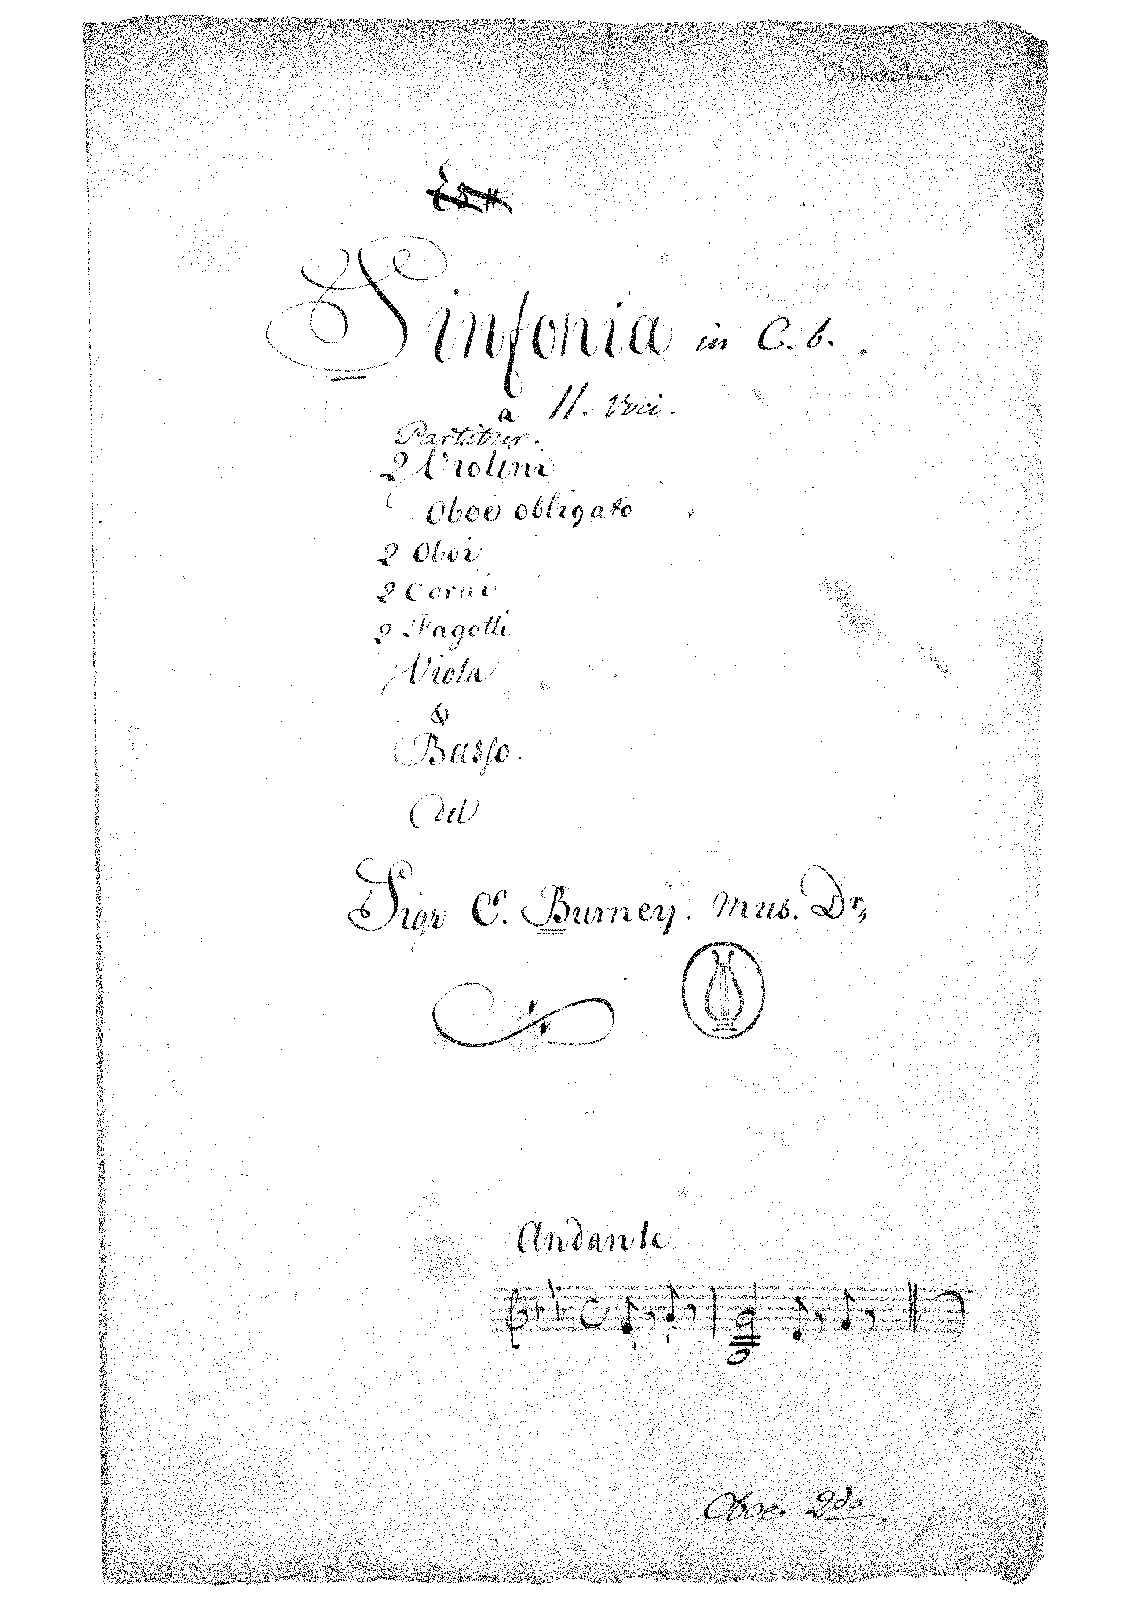 Sinfonia in C. b.
a 11. Voci.
Partitur.
2 Violini
Oboe obligato
2 Oboi
2 Corni
2 Fagotti
Viola
&
Basso.
del
Sigr C. Burney. Mus. Dr,
Andante
2do